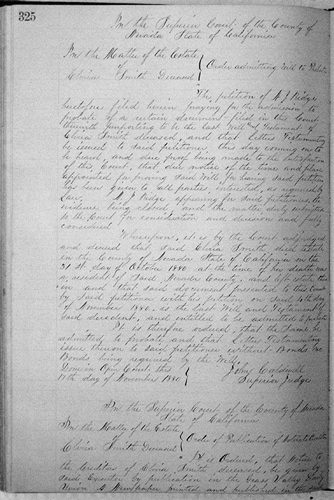 325
In the Superior Court of the County of
Nevada State of California
In the Matter of the Estate
of
Elvira Smith Deceased
Order admitting Will to Probate
The petition of A. J. Ridge
heretofore filed herein praying for the admission to
probate of a certain document filed in this Court
purporting to be the last Will & Testament of
Elvira Smith deceased, and that Letters Testamentary
be issued to said petitioner, this day coming on to
be heard, and due proof being made to the satisfaction
of this Court, that due notice of the time and place
appointed for proving said Will & hearing said petition
has been given to all parties interested, as required by
Law, A. J. Ridge appearing for said petitioner, &
evidence being heard and the matter duly submitted
to the Court for consideration and decision and fully
considered
Wherefore, it is by the Court adjudged
and decreed that said Elvira Smith died testate
in the County of Nevada State of California on the
31st day of October 1880 at the time of her death was
a resident of Said Nevada County and left estate
and that said document presented to this Court
by said petitioner with his petition, on said 10th day
of November 1880, is the Last Will and Testament of
said decedent, and entitled to be admitted to probate
It is therefore ordered, that the Same be
admitted to probate and that Letters Testamentary
issue thereon to said petitioner without Bonds no
Bonds being required by the Will
Done in Open Court this
19th day of November 1880
John Caldwell
Superior Judge
In the Superior Court of the County of Nevada
State of California
In the Matter of the Estate
of
Elvira Smith Deceased
Order of Publication of Notice to Creditors
It is Ordered, that Notice to
the Creditors of Elvira Smith deceased, be given by
Said Executor by publication in the Grass Valley Daily
Union a Newspaper printed and published in the